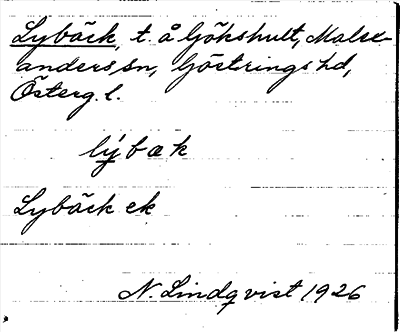 Lybäck, t. å Gökshult, Malex-
anders sn, Göstrings hd,
Österg. l.
lýbæk
Lybäck ek
N. Lindqvist 1926